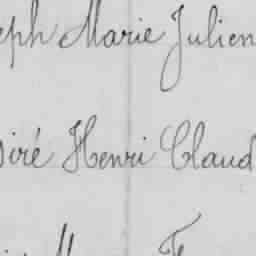 eph Marie Julien
siré Henri Claud